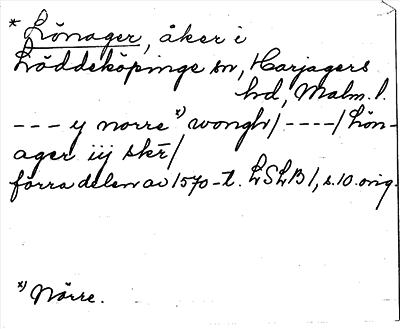 * Lönager, åker i
Löddeköpinge sn, Harjagers
hd, Malm. l.
--- y norre *) wongh/ ----/ Lön-
ager iij skr̄/
förra delen av 1570-t. LSLB 1, s. 10. orig.
*) Nörre.